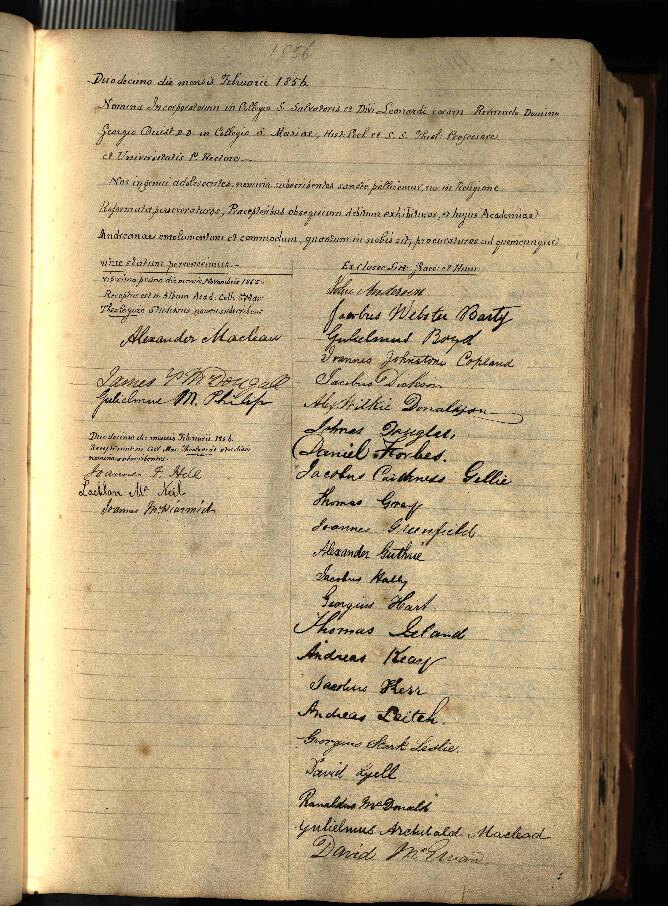 1856
Duodecimo die mensis Februarii 1856.
Nomina Incorporatorum in Collegio S. Salvatoris et Divi Leonardi coram Reverendo Domino
Georgio Buist D.D. in Collegio a Mariae, Hist: Eccl. et S. S. Theol: Professore
et Universitatis P. Rectore.
Nos ingenui adolescentes, nomina subscribentes sancte pollicemur, nos in Religione
Reformata perseveraturos, Praeceptoribus obsequium debitum exhibituros, et hujus Academiae
Andreanae emolumentum et commodum, quantum in nobis sit, procuraturos ad quemcunque
vitae statum pervenerimus.
vigesimo primo die mensis Novembris 1855
Receptus est in Album Acad. Coll. Mar
Theologiae Studiosus nomen subscribens
Alexander Maclean
James McDougall
Gulielmus M. Philip
Duodecimo die mensis Februarii 1856.
Recepti sunt in Coll. Mar. Theologiae studiosi
nomina subscribentes
Joannes F.
Lachlan Mc Neil
Joannes McDiarmid
Ex classe Lit: Graec: et Hum:
John Anderson
Jacobus Webster Barty
Gulielmus Boyd
Joannes Johnstone Copland
Jacobus Dickson
Alexr Wilkie Donaldson
James Douglas,
Daniel Forbes.
Jacobus Caithness Gellie
Thomas Gray
Joannes Greenfield
Alexander Guthrie
Jacobus Hally
Georgius Hart
Thomas Leland
Andreas Keay
Jacobus Kerr
Andreas Leitch.
Georgius Stark Leslie.
David Lyell
Ranaldus McDonald
Gulielmus Archibald Macleod
David McEwan